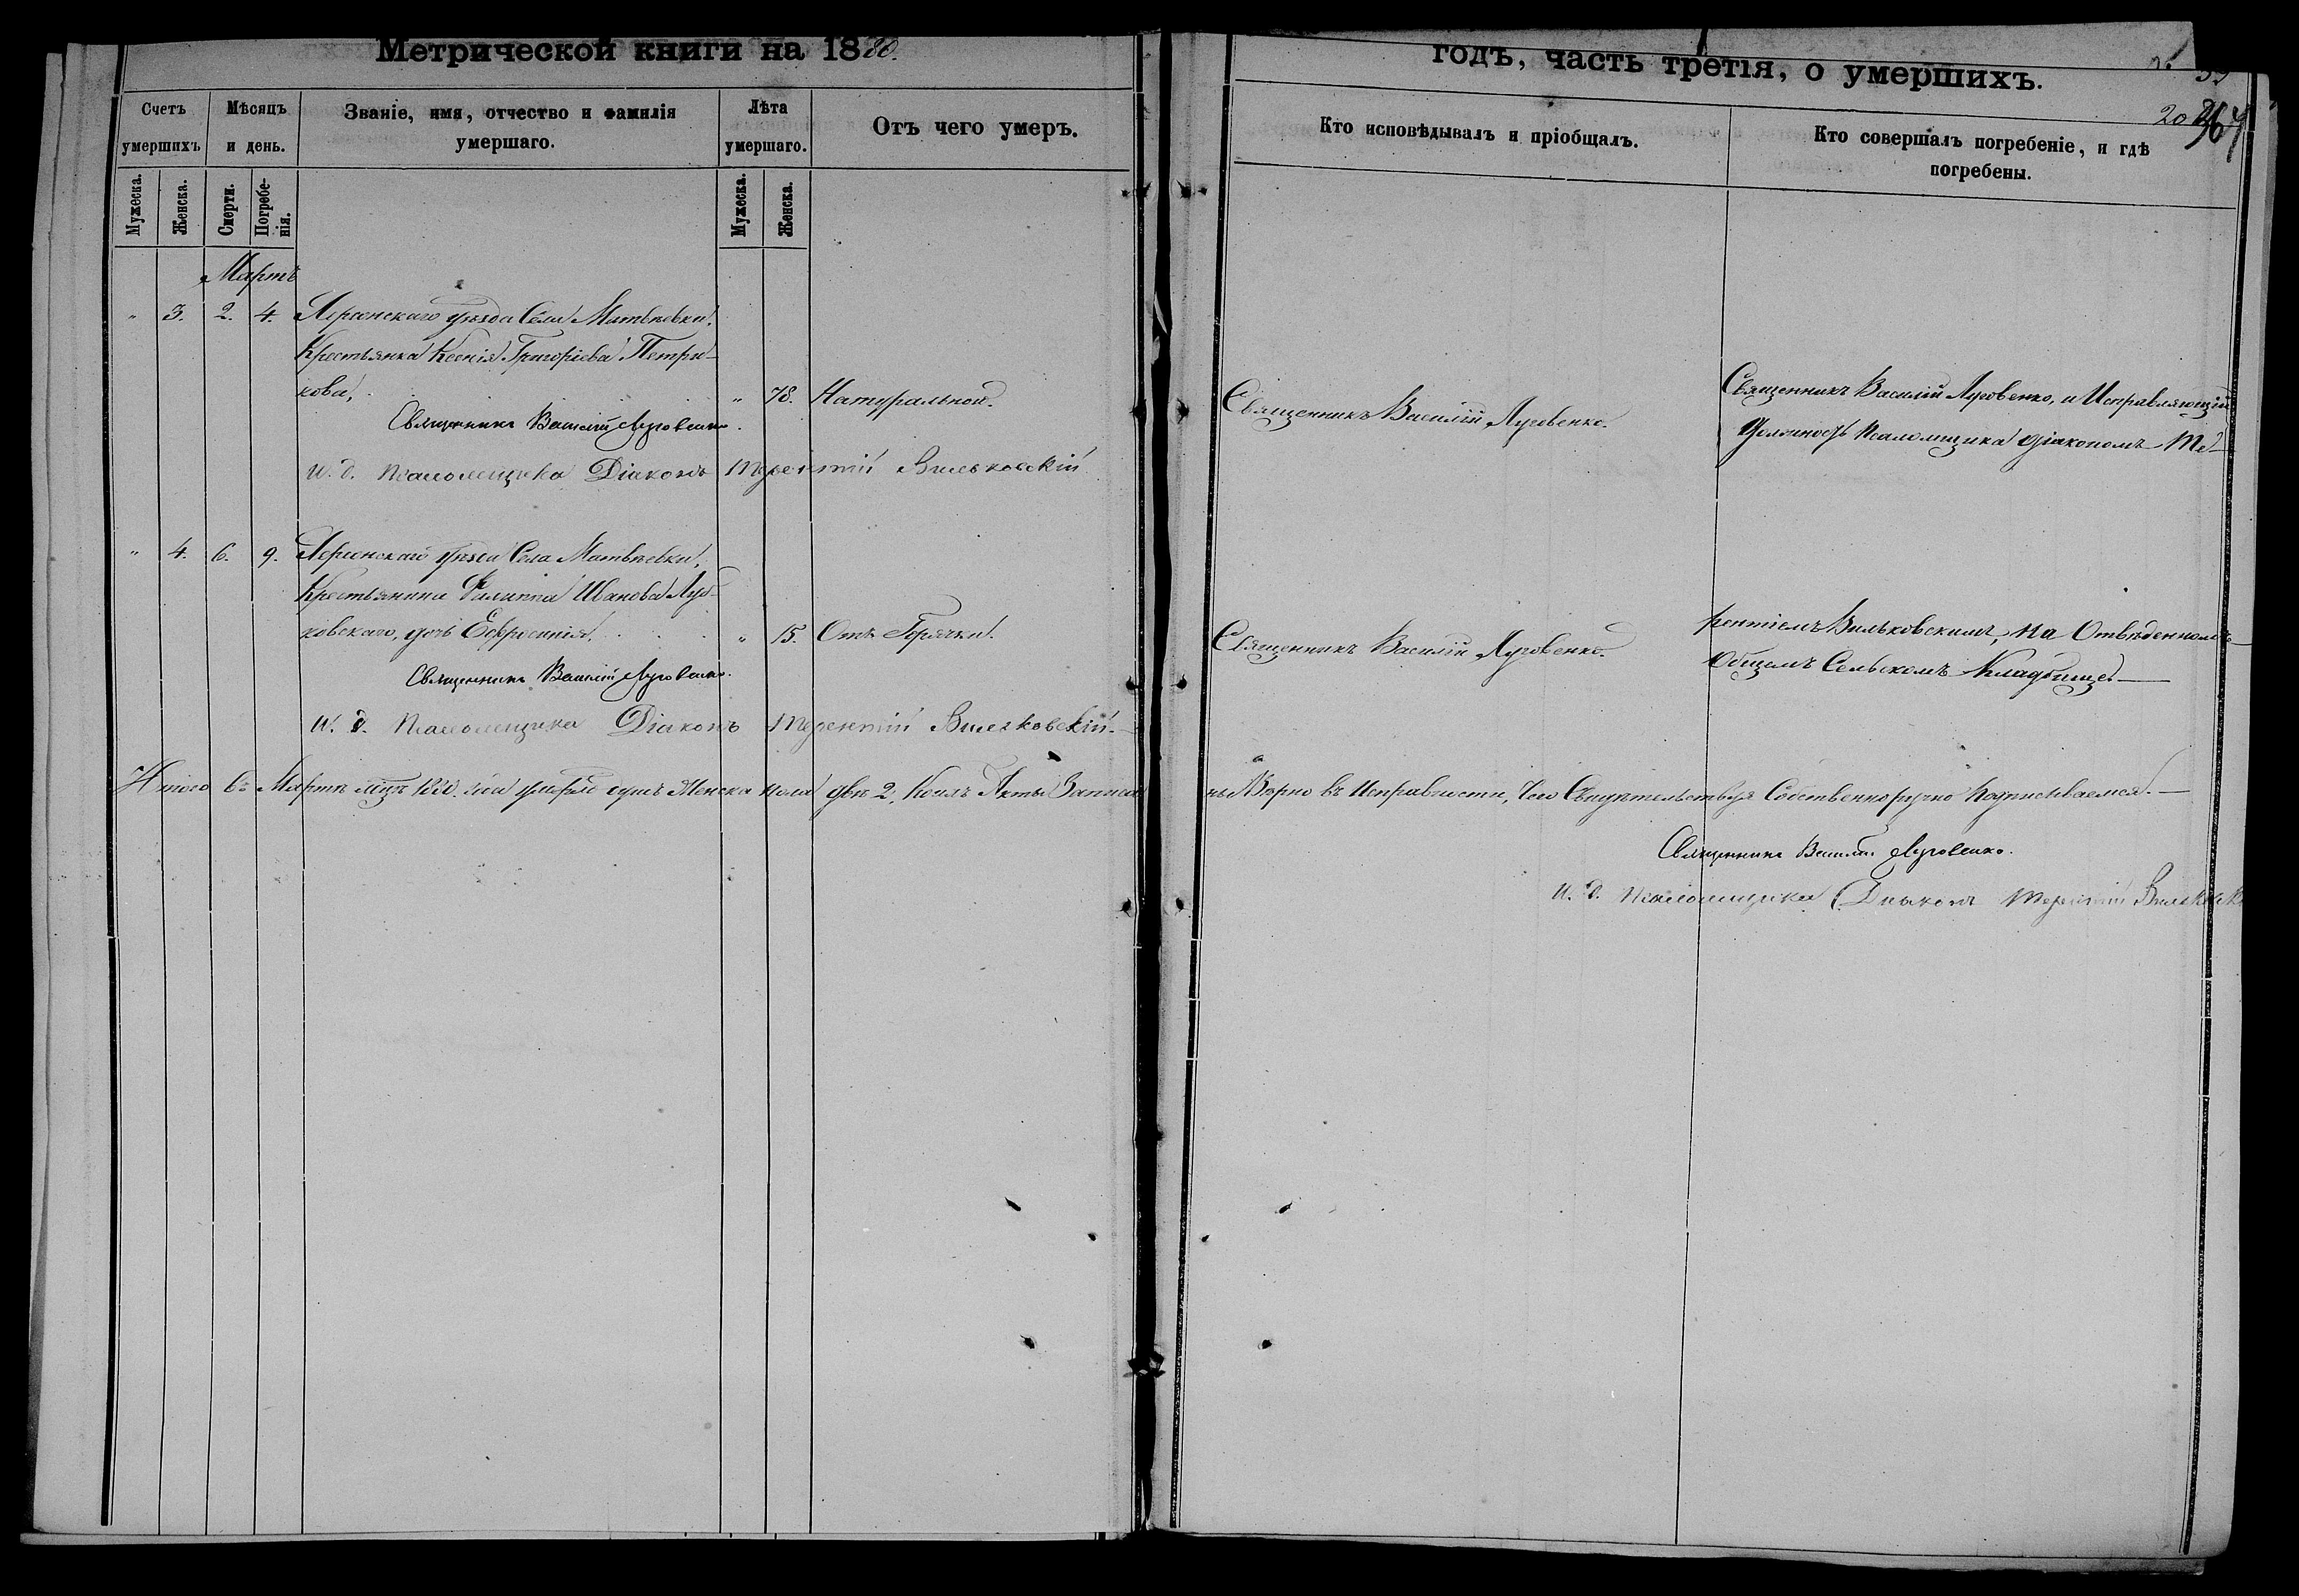 Метрической книги на 1880.
Счетъ умершихъ
Мѣсяцъ и день.
Званіе, имя, отчество и фамилія умершаго.
Лѣта умершаго.
Отъ чего умеръ.
Мужеска.
Женска.
Смерти.
Погребенія.
Мужеска.
Женска.
Мартъ
" 3. 2. 4. Херсонскаго уѣзда Села Матвѣевки,
Крестьянка Ксенія Григоріева Петри-
кова, " 78. Натуральной.
Священникъ Василій Луговенко.
и. д. псаломщика Діаконъ Терентій Вильковскій
" 4. 6. 9. Херсонскаго уѣзда Села Матвѣевки,
Крестьянина Филиппа Иванова
ковскаго, дочь Ефросинія, " 15. Отъ Горячки.
Священникъ Василій Луговенко.
и. д. псаломщика Діаконъ Терентій Вильковскій.
Итого въ Мартѣ мцѣ 1880. года умерло душъ Женска пола двѣ 2, Коихъ Акты Записа
годъ, часть третія, о умершихъ.
Кто исповѣдывалъ и пріобщалъ.
Кто совершалъ погребеніе, и гдѣ погребены.
Священникъ Василій Луговенко.
Священникъ Василій Луговенко, и Исправляющій
Должность Псаломщика діакономъ Те-
Священникъ Василій Луговенко.
рентіемъ Вильковскимъ, на Отвѣденномъ
Общемъ Сельскомъ Кладбище
ны Вѣрно въ Исправности, Чего Свидѣтельствуя Собственноручно Подписываемся.
Священникъ Василій Луговенко.
и. д. псаломщика Діаконъ Терентій